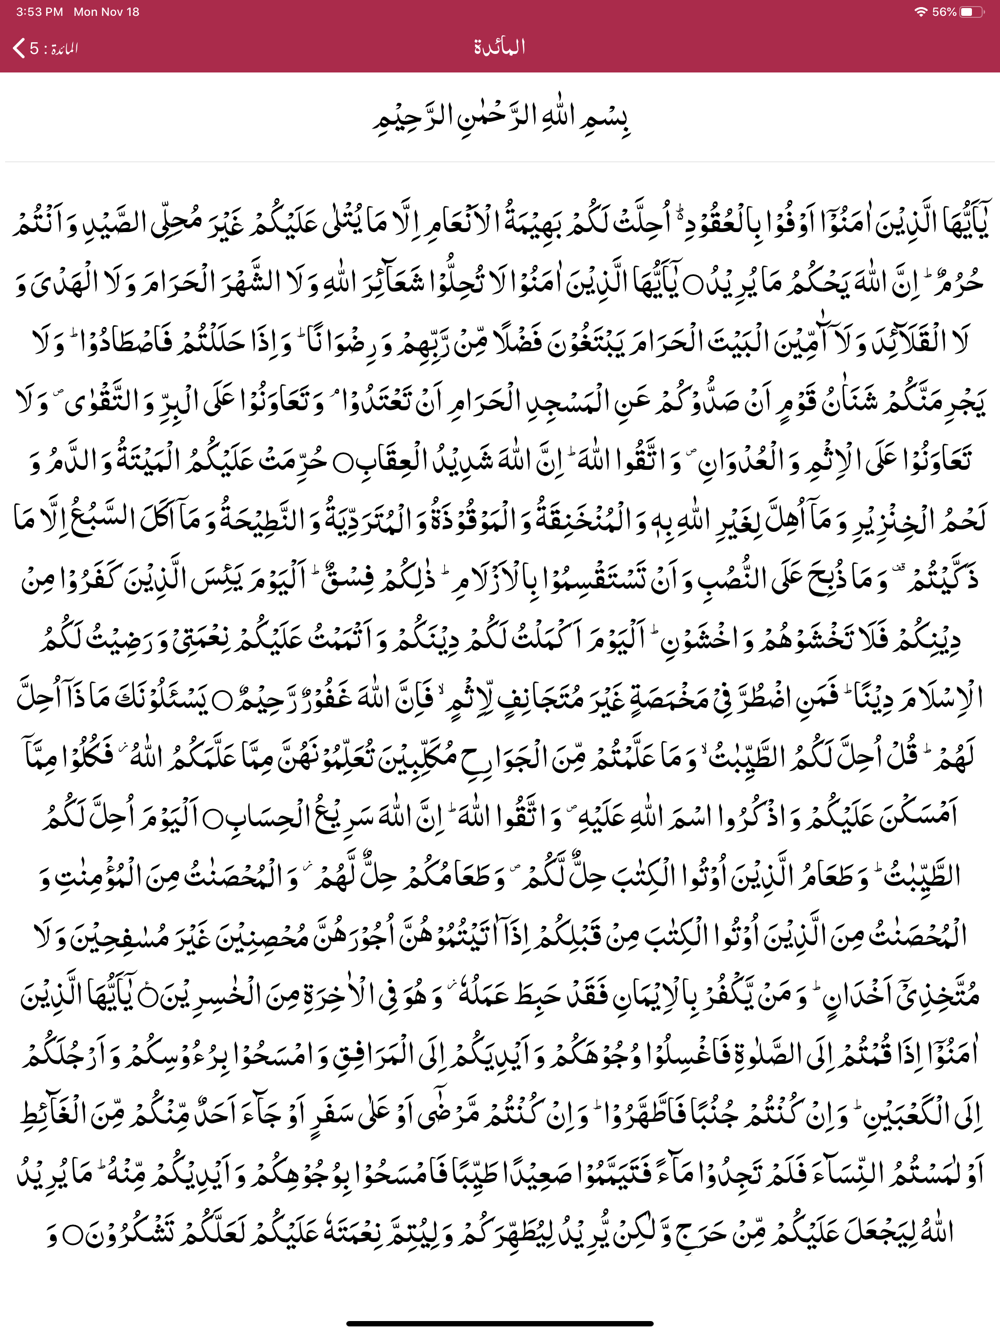 3:53 PM Mon Nov 18 56%
المائدة : 5 المائدة
بِسْمِ اللّٰهِ الرَّحْمٰنِ الرَّحِيْمِ
يٰۤاَيُّهَا الَّذِيْنَ اٰمَنُوْۤا اَوْفُوْا بِالْعُقُوْدِ ۬ؕ اُحِلَّتْ لَكُمْ بَهِيْمَةُ الْاَنْعَامِ اِلَّا مَا يُتْلٰى عَلَيْكُمْ غَيْرَ مُحِلِّى الصَّيْدِ وَ اَنْتُمْ
حُرُمٌ ؕ اِنَّ اللّٰهَ يَحْكُمُ مَا يُرِيْدُ○ يٰۤاَيُّهَا الَّذِيْنَ اٰمَنُوْا لَا تُحِلُّوْا شَعَآئِرَ اللّٰهِ وَ لَا الشَّهْرَ الْحَرَامَ وَ لَا الْهَدْىَ وَ
لَا الْقَلَآئِدَ وَ لَاۤ آٰمِّيْنَ الْبَيْتَ الْحَرَامَ يَبْتَغُوْنَ فَضْلًا مِّنْ رَّبِّهِمْ وَ رِضْوَانًا ؕ وَ اِذَا حَلَلْتُمْ فَاصْطَادُوْا ؕ وَ لَا
يَجْرِمَنَّكُمْ شَنَاٰنُ قَوْمٍ اَنْ صَدُّوْكُمْ عَنِ الْمَسْجِدِ الْحَرَامِ اَنْ تَعْتَدُوْا ۘ وَ تَعَاوَنُوْا عَلَى الْبِرِّ وَ التَّقْوٰى ۪ وَ لَا
تَعَاوَنُوْا عَلَى الْاِثْمِ وَ الْعُدْوَانِ ۪ وَ اتَّقُوا اللّٰهَ ؕ اِنَّ اللّٰهَ شَدِيْدُ الْعِقَابِ○ حُرِّمَتْ عَلَيْكُمُ الْمَيْتَةُ وَ الدَّمُ وَ
لَحْمُ الْخِنْزِيْرِ وَ مَاۤ اُهِلَّ لِغَيْرِ اللّٰهِ بِهٖ وَ الْمُنْخَنِقَةُ وَ الْمَوْقُوْذَةُ وَ الْمُتَرَدِّيَةُ وَ النَّطِيْحَةُ وَ مَاۤ اَكَلَ السَّبُعُ اِلَّا مَا
ذَكَّيْتُمْ ۫ وَ مَا ذُبِحَ عَلَى النُّصُبِ وَ اَنْ تَسْتَقْسِمُوْا بِالْاَزْلَامِ ؕ ذٰلِكُمْ فِسْقٌ ؕ اَلْيَوْمَ يَئِسَ الَّذِيْنَ كَفَرُوْا مِنْ
دِيْنِكُمْ فَلَا تَخْشَوْهُمْ وَ اخْشَوْنِ ؕ اَلْيَوْمَ اَكْمَلْتُ لَكُمْ دِيْنَكُمْ وَ اَتْمَمْتُ عَلَيْكُمْ نِعْمَتِيْ وَ رَضِيْتُ لَكُمُ
الْاِسْلَامَ دِيْنًا ؕ فَمَنِ اضْطُرَّ فِيْ مَخْمَصَةٍ غَيْرَ مُتَجَانِفٍ لِّاِثْمٍ ۙ فَاِنَّ اللّٰهَ غَفُوْرٌ رَّحِيْمٌ○ يَسْـَٔلُوْنَكَ مَا ذَاۤ اُحِلَّ
لَهُمْ ؕ قُلْ اُحِلَّ لَكُمُ الطَّيِّبٰتُ ۙ وَ مَا عَلَّمْتُمْ مِّنَ الْجَوَارِحِ مُكَلِّبِيْنَ تُعَلِّمُوْنَهُنَّ مِمَّا عَلَّمَكُمُ اللّٰهُ ؗ فَكُلُوْا مِمَّاۤ
اَمْسَكْنَ عَلَيْكُمْ وَ اذْكُرُوا اسْمَ اللّٰهِ عَلَيْهِ ۪ وَ اتَّقُوا اللّٰهَ ؕ اِنَّ اللّٰهَ سَرِيْعُ الْحِسَابِ○ اَلْيَوْمَ اُحِلَّ لَكُمُ
الطَّيِّبٰتُ ؕ وَ طَعَامُ الَّذِيْنَ اُوْتُوا الْكِتٰبَ حِلٌّ لَّكُمْ ۪ وَ طَعَامُكُمْ حِلٌّ لَّهُمْ ؗ وَ الْمُحْصَنٰتُ مِنَ الْمُؤْمِنٰتِ وَ
الْمُحْصَنٰتُ مِنَ الَّذِيْنَ اُوْتُوا الْكِتٰبَ مِنْ قَبْلِكُمْ اِذَاۤ اٰتَيْتُمُوْهُنَّ اُجُوْرَهُنَّ مُحْصِنِيْنَ غَيْرَ مُسٰفِحِيْنَ وَ لَا
مُتَّخِذِيْۤ اَخْدَانٍ ؕ وَ مَنْ يَّكْفُرْ بِالْاِيْمَانِ فَقَدْ حَبِطَ عَمَلُهٗ ؗ وَ هُوَ فِى الْاٰخِرَةِ مِنَ الْخٰسِرِيْنَ○ يٰۤاَيُّهَا الَّذِيْنَ
اٰمَنُوْۤا اِذَا قُمْتُمْ اِلَى الصَّلٰوةِ فَاغْسِلُوْا وُجُوْهَكُمْ وَ اَيْدِيَكُمْ اِلَى الْمَرَافِقِ وَ امْسَحُوْا بِرُءُوْسِكُمْ وَ اَرْجُلَكُمْ
اِلَى الْكَعْبَيْنِ ؕ وَ اِنْ كُنْتُمْ جُنُبًا فَاطَّهَّرُوْا ؕ وَ اِنْ كُنْتُمْ مَّرْضٰۤى اَوْ عَلٰى سَفَرٍ اَوْ جَآءَ اَحَدٌ مِّنْكُمْ مِّنَ الْغَآئِطِ
اَوْ لٰمَسْتُمُ النِّسَآءَ فَلَمْ تَجِدُوْا مَآءً فَتَيَمَّمُوْا صَعِيْدًا طَيِّبًا فَامْسَحُوْا بِوُجُوْهِكُمْ وَ اَيْدِيْكُمْ مِّنْهُ ؕ مَا يُرِيْدُ
اللّٰهُ لِيَجْعَلَ عَلَيْكُمْ مِّنْ حَرَجٍ وَّ لٰكِنْ يُّرِيْدُ لِيُطَهِّرَكُمْ وَ لِيُتِمَّ نِعْمَتَهٗ عَلَيْكُمْ لَعَلَّكُمْ تَشْكُرُوْنَ○ وَ